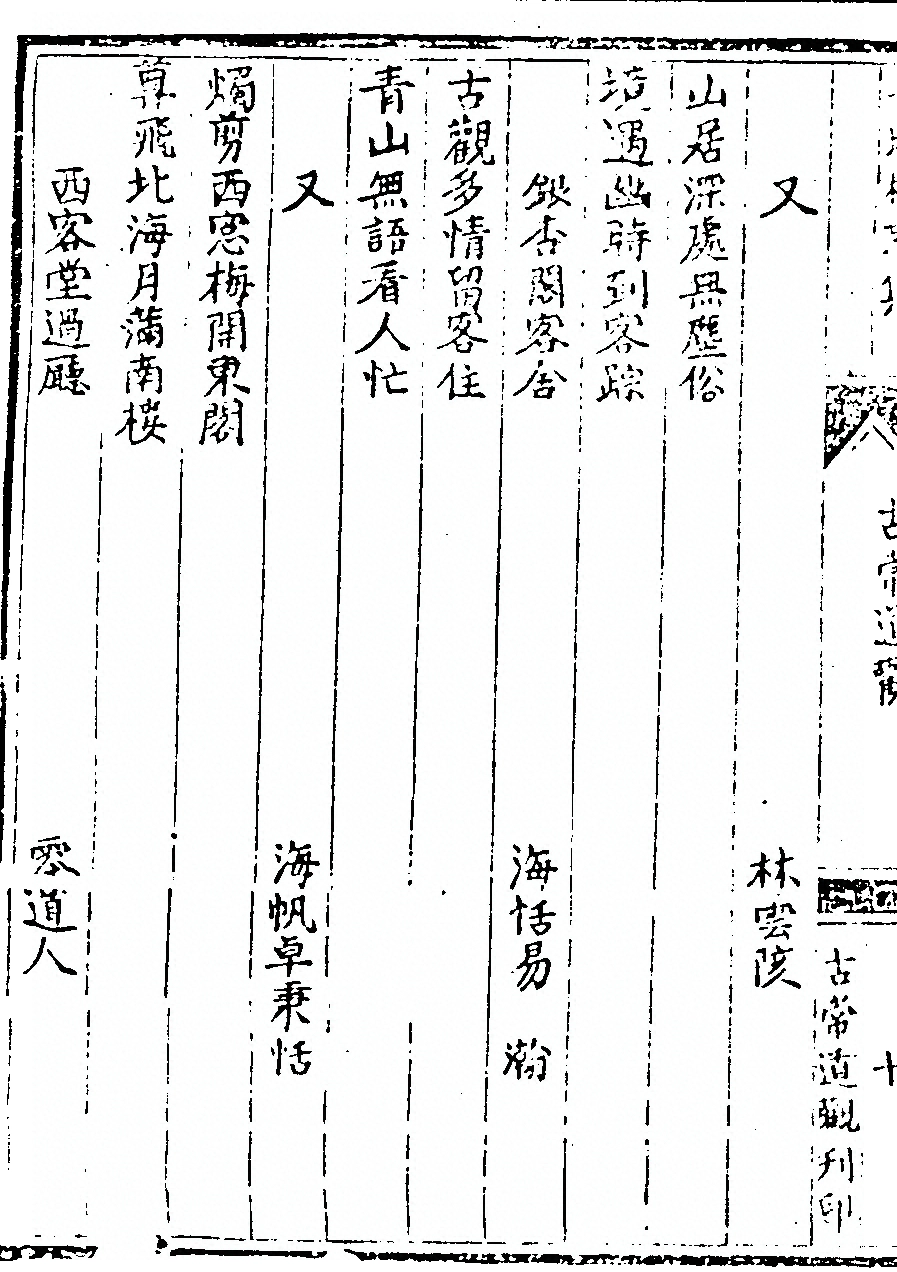 古常道觀
十
古常道觀刊印
又 林雲陔
山居深處無塵俗
境過幽時到客踪
銀杏閣客舍 海恬易 瀚
古觀多情留客住
青山無語看人忙
又 海帆卓秉恬
燭剪西窓梅開東閣
尊飛北海月滿南樓
西客堂過廳 零道人